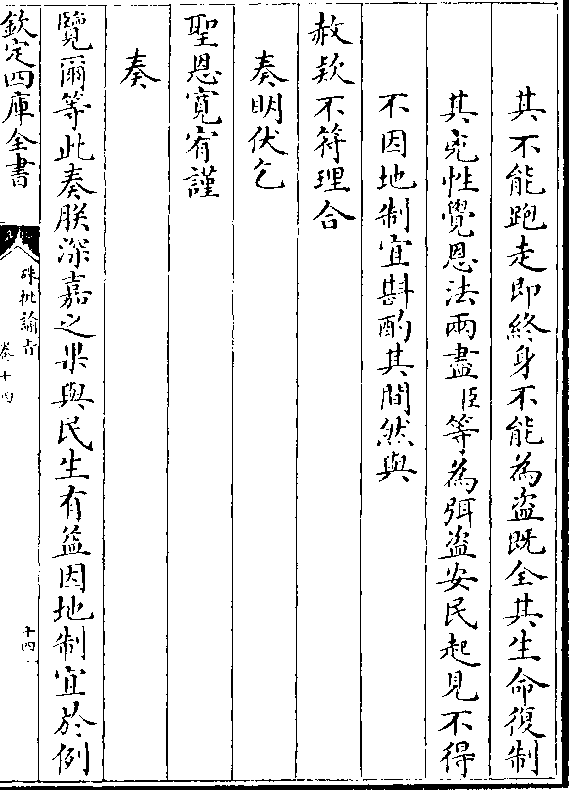 其不能跑走即終身不能為盗既全其生命復制
其兇性覺恩法兩盡臣等為弭盗安民起見不得
不因地制宜斟酌其間然與
赦款不符理合
奏明伏乞
聖恩寛宥謹
奏
覽爾等此奏朕深嘉之果與民生有益因地制宜於例
欽定四庫全書
硃批諭㫖
卷十四
十四